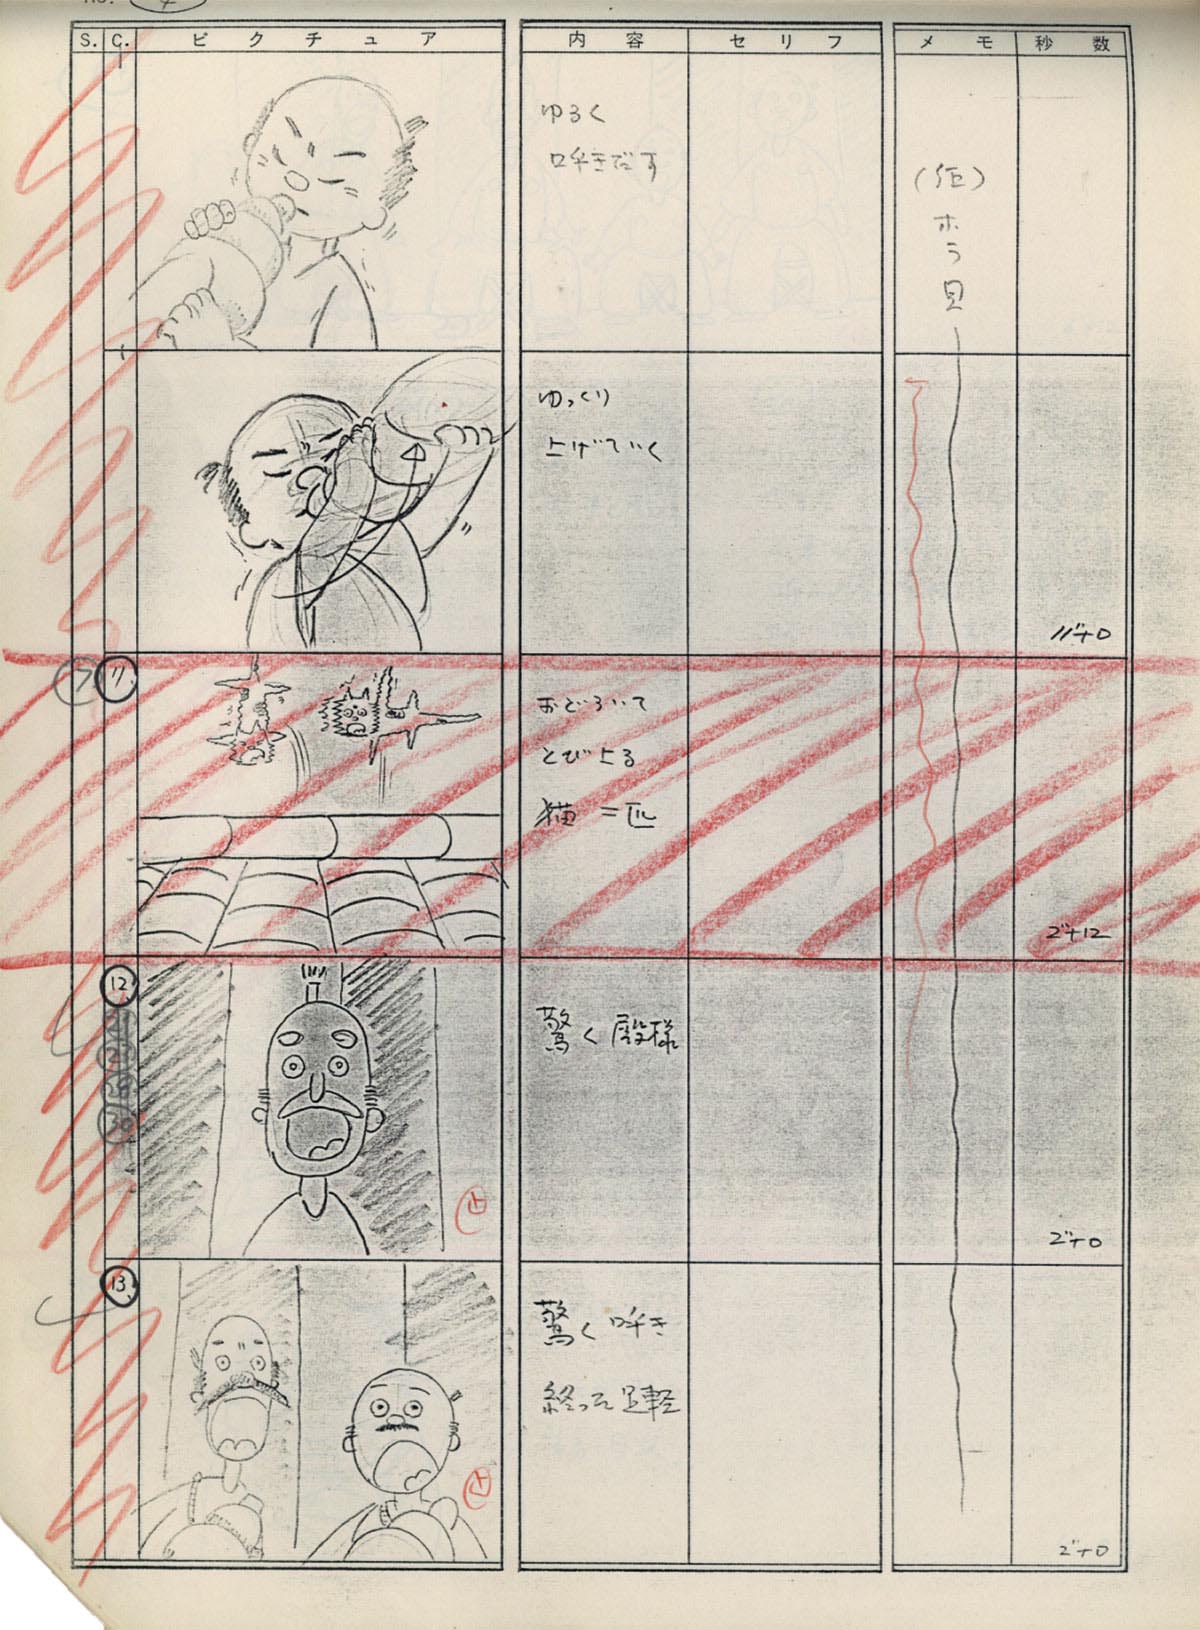 4
S. C. ピクチュア 内容 セリフ メモ 秒数
ゆるく
吹きだす
(仮)
ホラ貝
ゆっくり
上げていく
11"+0
11
おどろいて
とび上る
猫二匹
2"+12
12
驚く殿様
止
2"+0
13
驚く吹き
終った足軽
止
2"+0